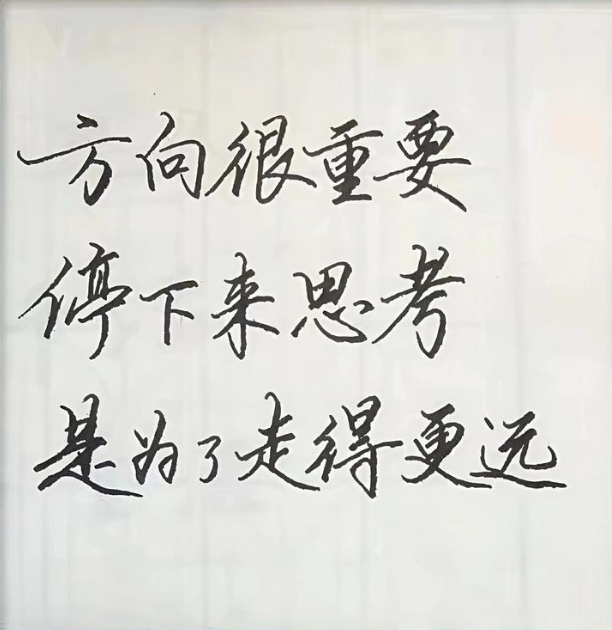 方向很重要
停下来思考
是为了走得更远